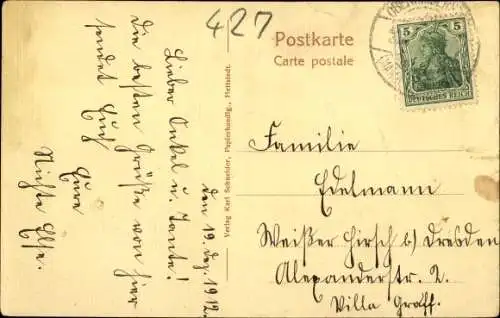 427
Postkarte
Carte postale
5
DEUTSCHES REICH
den 19. Dez. 1912.
Lieber Onkel u. Tante!
die besten Grüße von hier
sendet Euch
Eure
Nichte Else.
Verlag Karl Schneider, Papierhandlg., Hettstedt.
Familie
Edelmann
Weißer Hirsch b/ Dresden
Alexanderstr. 2.
Villa Graff.